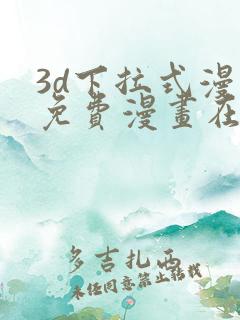 3d下拉式漫
免費漫畫在
多吉扎西
未经同意禁止转载